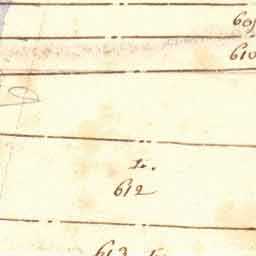 609
610
L.
612
613